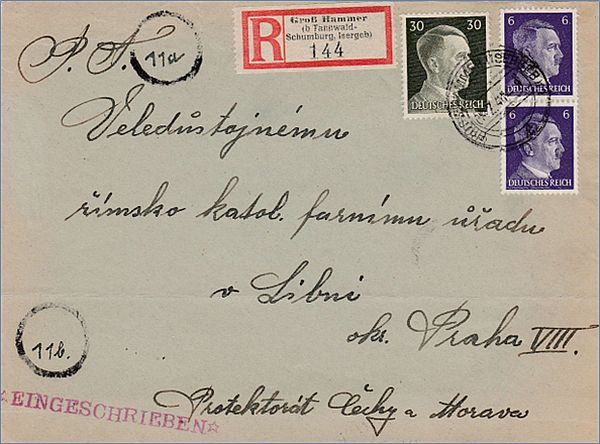 P. T.
11a
R
Groß Hammer
(b Tannwald-
Schumburg, Isergeb)
144
30 30
DEUTSCHES REICH
6 6
DEUTSCHES REICH
6 6
DEUTSCHES REICH
Veledůstojnému
římsko katol. farnímu úřadu
v Libni
okr. Praha VIII.
11b.
☆EINGESCHRIEBEN☆
Protektorát Čechy a Morava